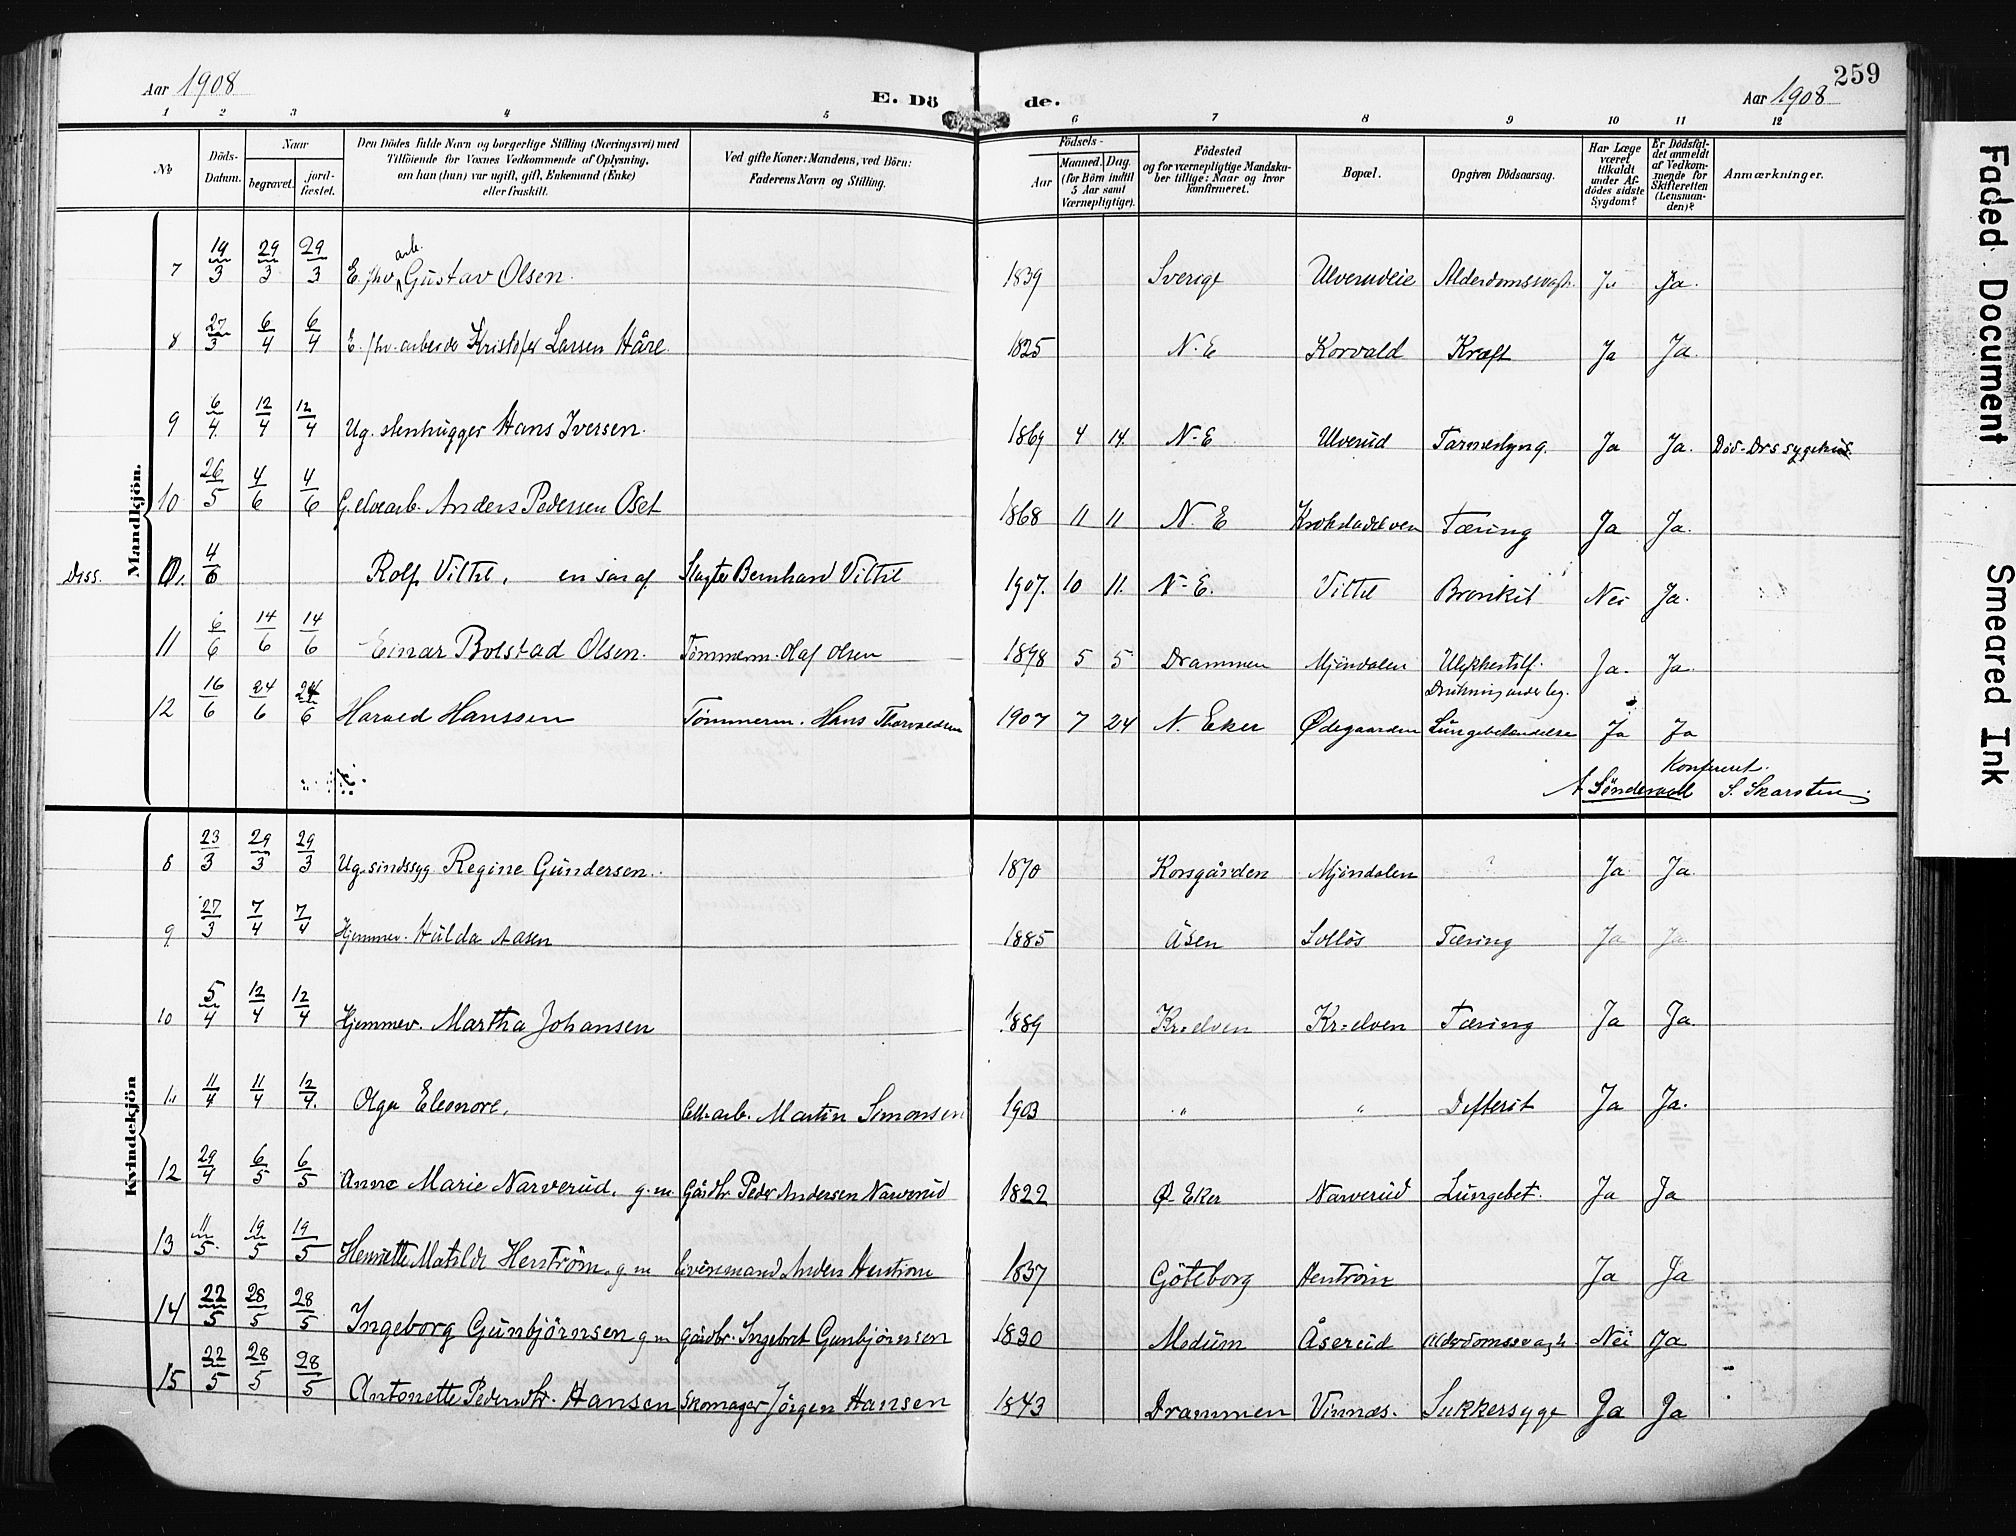 Aar 1908
E. Dö
de.
Aar 1908
259
1 2 3 4 5 6 7 8 9 10 11 12
No
Döds-Datum.
Naar
begravet.
jord-fæstet.
Den Dödes fulde Navn og borgerlige Stilling (Næringsvei) med Tilföiende for Voxnes Vedkommende af Oplysning, om han (hun) var ugift, gift, Enkemand (Enke) eller fraskilt.
Ved gifte Koner: Mandens, ved Börn: Faderens Navn og Stilling.
Födsels-
Aar
Maaned. Dag.
(for Börn indtil 5 Aar samt Værnepligtige).
Födested og for værnepligtige Mandskaber tillige: Naar og hvor konfirmeret.
Bopæl.
Opgiven Dödsaarsag.
Har Læge været tilkaldt under Afdödes sidste Sygdom?
Er Dödsfaldet anmeldt af Vedkommende for Skifteretten (Lensmanden)?
Anmærkninger.
Mandkjön.
7 19/3 29/3 29/3 E. fhv. arb. Gustav Olsen. 1839 Sverige Ulverudeie Alderdomssvagh. Ja Ja.
8 27/3 6/4 6/4 E. fhv. arbeider Kristofer Larsen Håre. 1825 N. E Korvald Kræft Ja Ja.
9 6/4 12/4 12/4 Ug. stenhugger Hans Iversen. 1869 4 14. N-E Ulverud Tarmeslyng. Ja Ja. Död - Drs sygehus.
10 26/5 4/6 4/6 G. elvearb. Anders Pedersen Oset 1868 11 11 N. E Krokstadelven Tæring Ja Ja.
Diss. 0. 4/6 Rolf Vilhl, en søn af Slagter Bernhard Vilhl 1907. 10 11. N-E. Vilhl Bronkit Nei Ja.
11 6/6 14/6 14/6 Einar Bolstad Olsen. Tømmerm. Olaf Olsen 1898 5 5 Drammen Mjøndalen Ulykkestilf. Drukning under bg. Ja. Ja.
12 16/6 24/6 24/6 Harald Hanssen Tømmerm. Hans Thorvaldsen 1907 7 24 N. Eker Ødegaarden Lungebetændelse Ja Ja
Konfereret.
A Söndervall S. Skarstein
Kvindekjön
8 23/3 29/3 29/3 Ug. sindssyg Regine Gundersen. 1870 Korsgården Mjøndalen ? Ja Ja.
9 27/3 7/4 7/4 Hjemmev. Hulda Aasen 1885 Åsen Solløs Tæring Ja Ja
10 5/4 12/4 12/4 Hjemmev. Martha Johansen 1889 Kr-elven Kr-elven Tæring Ja Ja.
11 11/4 11/4 12/4. Olga Eleonore. Cell. arb. Martin Simonsen 1903 " " Difterit Ja Ja.
12 29/4 6/5 6/5 Anne Marie Narverud, g.m. Gårdbr. Peder Andersen Narverud 1822 Ø. Eker Narverud Lungebet. Ja Ja
13 11/5. 19/5 19/5 Henriette Matilde Henstrøm. g m Anders Henstrøm 1837 Göteborg Henstrøm Ja Ja
14 22/5 28/5 28/5 Ingeborg Gunbjörnsen g m gårdbr. Ingebret Gunbjörnsen 1830 Modum Åserud Alderdomssvagh. Nei Ja
15 22/5 28/5 28/5 Antonette Pedersdtr. Hansen Skomager Jörgen Hansen 1843 Drammen Vinnæs. Sukkersyge Ja Ja
Faded Document
Smeared Ink